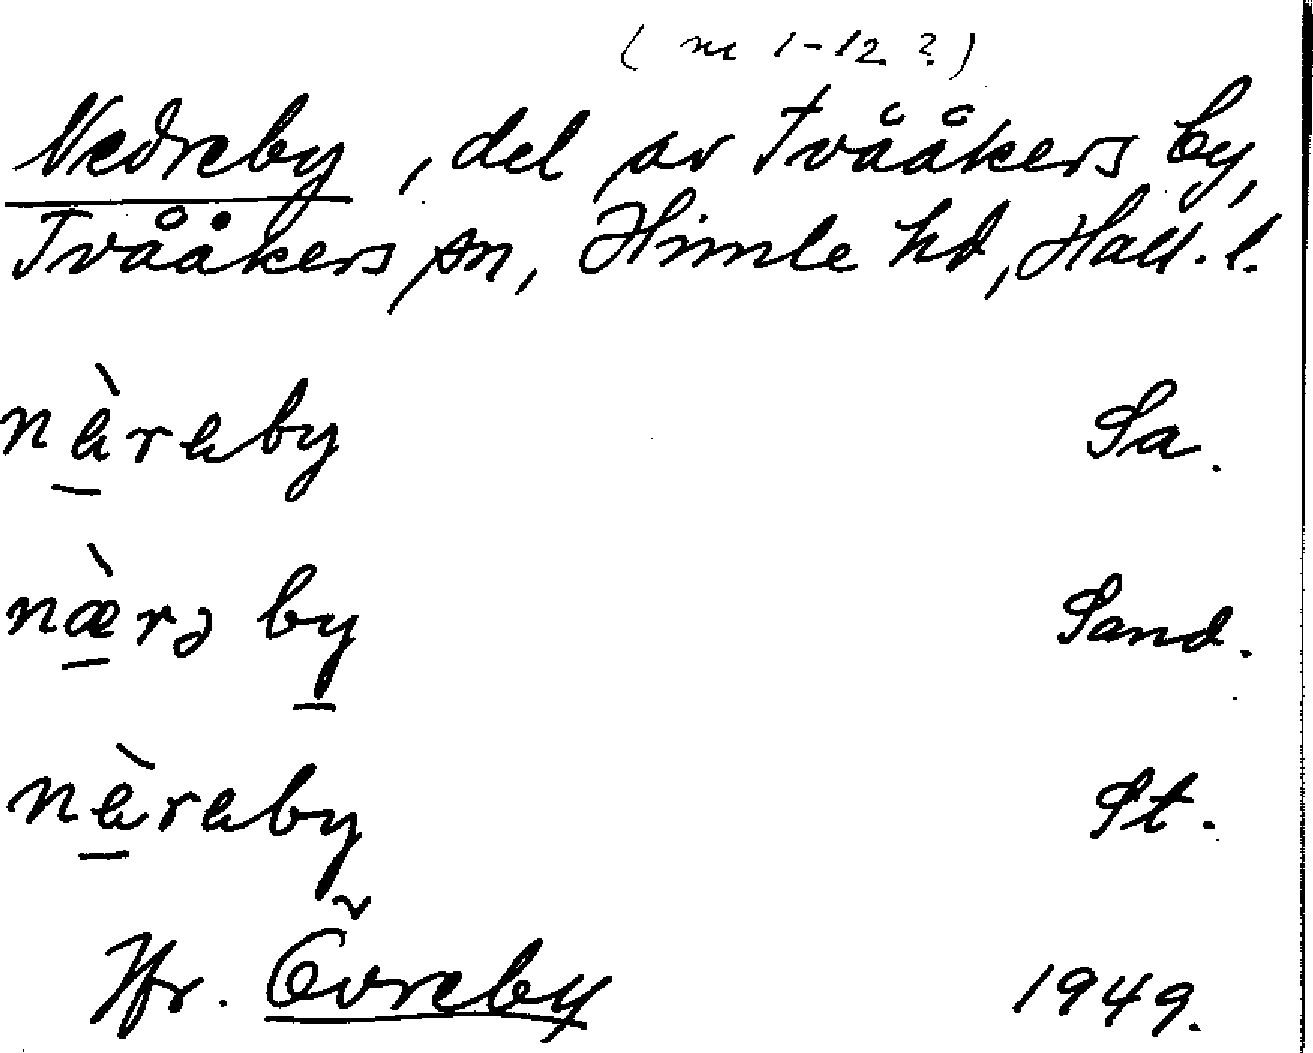 (nr 1-12 ?)
Nedreby, del av Tvååkers by,
Tvååkers sn, Himle hd, Hall. l.
Sa.
næ̀rə by Sand.
St.
Jfr. Övreby 1949.